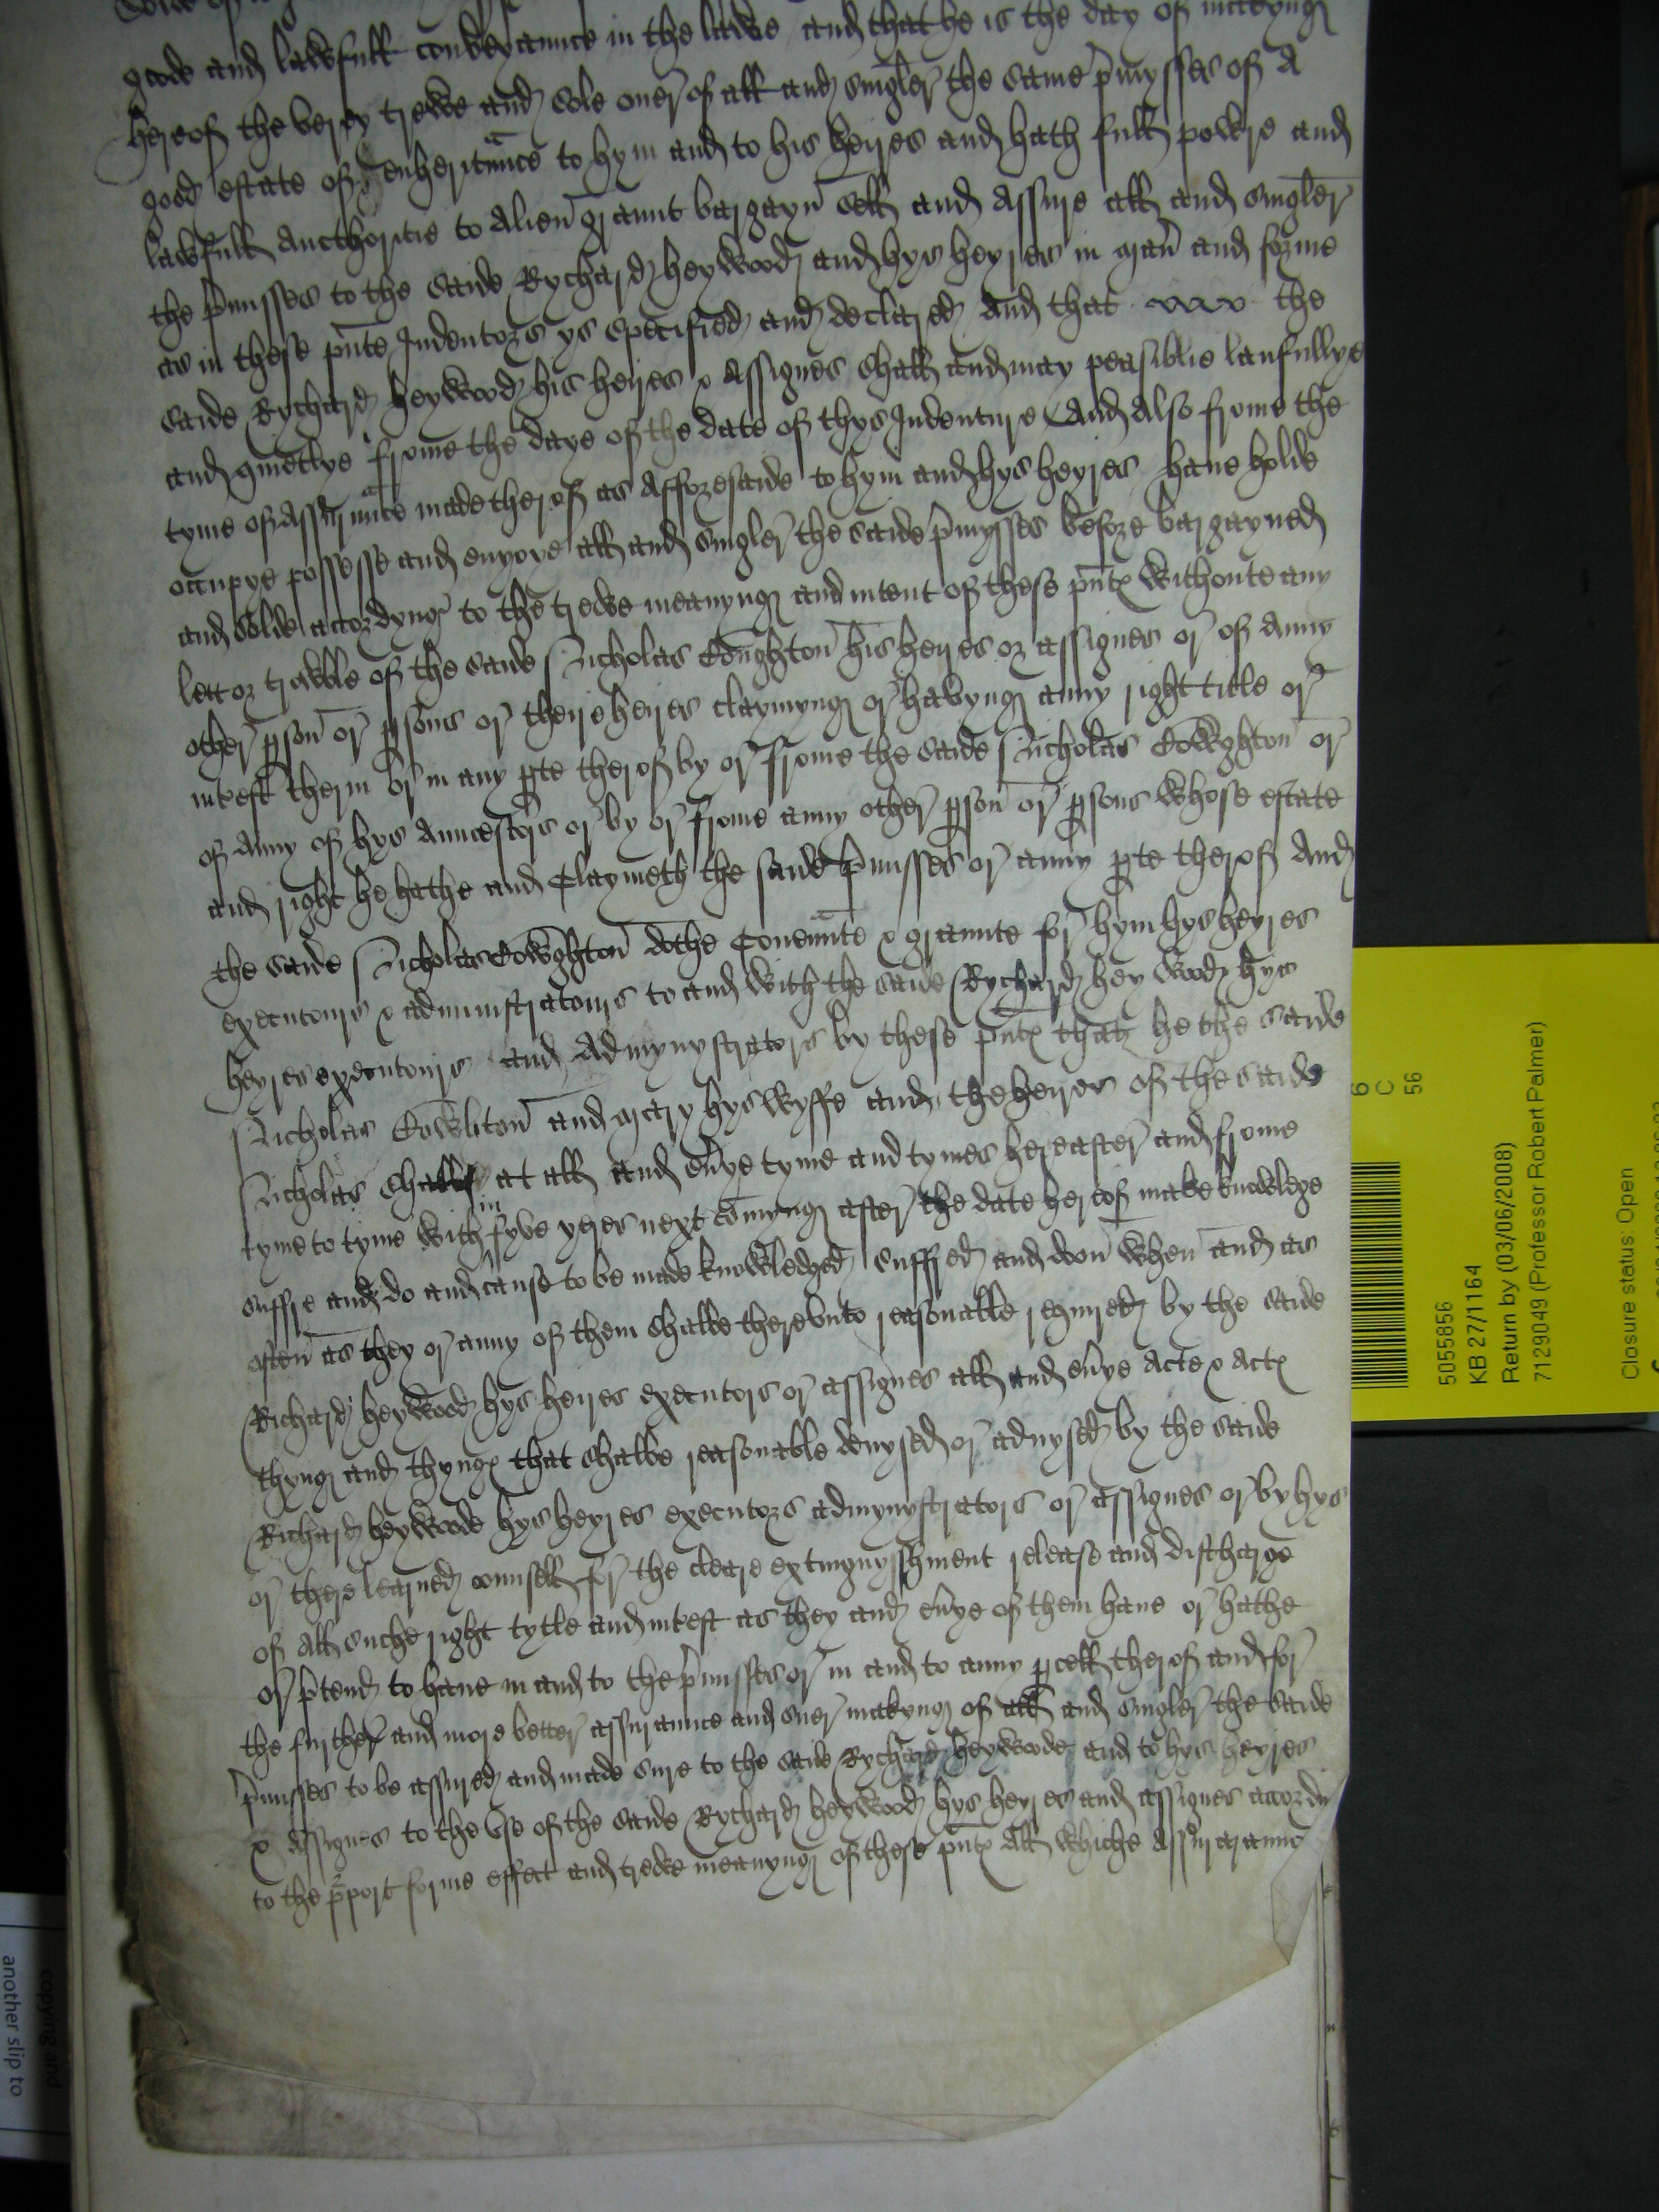 goode and lawfull conveyannce in the lawe and that he is the day of makyng
hereof the verey trewe and sole oner of all and singler the same pmysses of A
good estate of enheritance to hym and to his heires and hath full powre and
lawfull Aucthoritie to Alien graunt bargayn sell and Assure all and singler
the pmisses to the saide Rychard heywood and hys heyres in man and forme
as in these pnte Indentors ys specified and declared And that the
saide Rychard heywood his heires & Assignes shall and may peasiblie laufullye
and quietlye frome the daye of the date of thys Indenture And Also frome the
tyme of Assurance made therof as Afforesaide to hym and hys heyres have holde
occupye possesse and enyoye all and singler the saide pmysses before bargayned
and solde accordyng to the trewe meanyng and intent of these pntes withoute any
lett or trowble of the saide Nicholas Coughton his heires or assignes or of Anny
other pson or psons or theire heires claymyng or havyng anny right title or
intest therin or in any pte therof by or frome the saide Nicholas Cowghton or
of Anny of hys Anncestors or by or frome anny other pson or psons whose estate
and right he hathe and Claymeth the saide pmisses or anny pte therof And
the saide Nicholas Cowghton dothe Convennte & graunte for hym hys heyres
executours & administratours to and with the saide Rychard heywood hys
heyres executours and Admynystrators by these pntes that he the saide
Nicholas Cowhton and Mary hys wyffe and the heires of the saide
Nicholas shall at all and evye tyme and tymes hereafter and frome
tyme to tyme within fyve yeres next comyng after the date hereof make knowledge
suffre and do and cause to be made knowledged suffred and doon when and as
often as they or anny of them shalbe therevnto reasonable required by the saide
Richard heywood hys heires executors or assignes all and evye Acte & Actes
thyng and thynges that shalbe reasonable devysed or advysed by the saide
Richard heywoode hys heyres executors admynystrators or assignes or by hys
or there learned counsell for the cleare extinguysshment release and discharge
of All suche right tytle and intest as they and evye of them have or hathe
or ptend to have in and to the pmisses or in and to anny pcell therof and for
the further and more better assurannce and suer makyng of all and singler the saide
pmisses to be assured and made sure to the saide Rychard heywoode and to hys heyres
& Assignes to the vse of the saide Rychard heywood hys heyres and assignes accordin
to the pport forme effect and trewe meanyng of these pntes All whiche
5055856
KB 27/1164
Return by (03/06/2008)
7129049 (Professor Robert Palmer)
Closure status: Open
6
C
56
copying and
another slip to